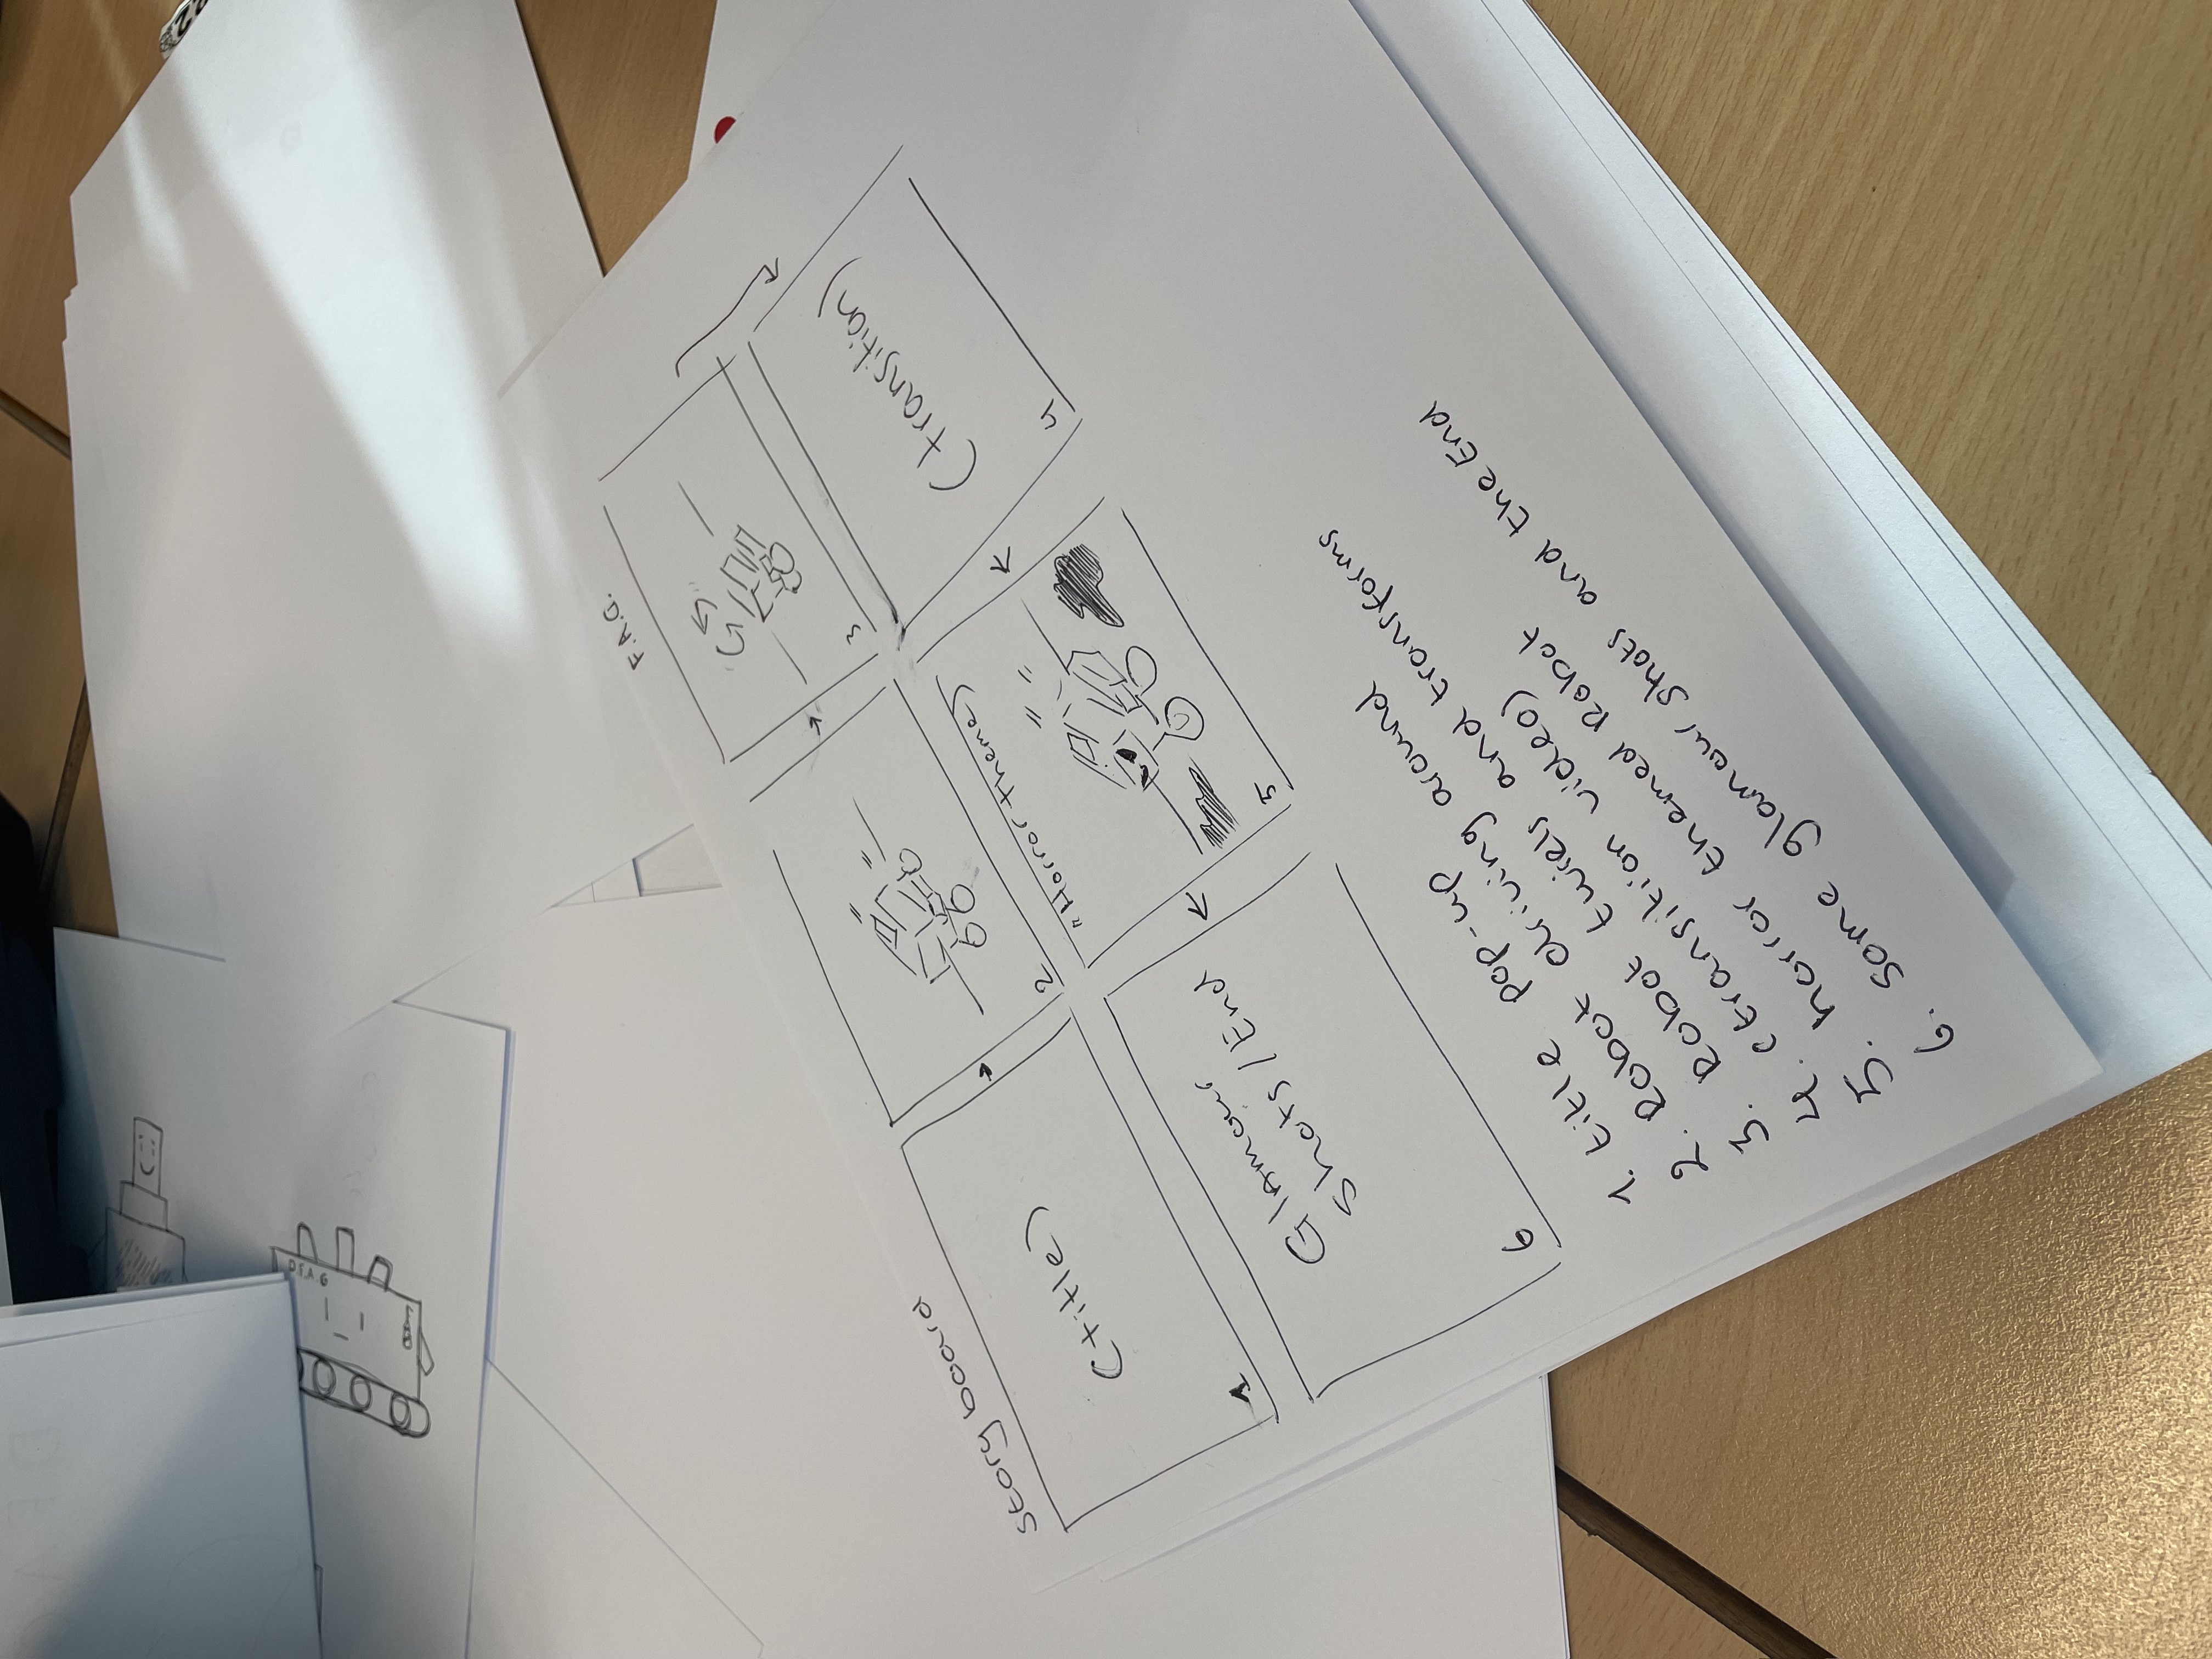 Story board
F.A.G.
(title)
1
2
3
(transition)
4
"Horror theme)
5
Glamour
shots/End
6
1. title pop-up
2. Robot driving around
3. Robot twirels and transforms
4. (transition video)
5. horror themed Robot
6. some glamour shots and the End